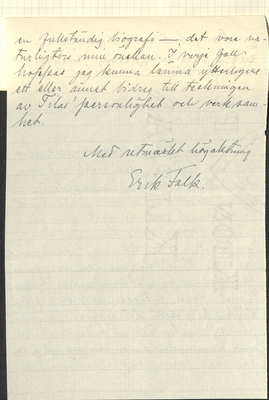 en fullständig biografi — det vore na-
turligtvis min önskan. I varje fall
hoppas jag kunna lämna ytterligare
ett eller annat bidrag till teckningen
av Tilas' personlighet och verksam-
het.
Med utmärkt högaktning
Erik Falk.